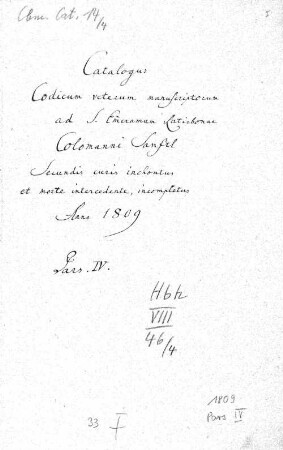 Cbm. Cat. 14/4
Catalogus
Codicum veterum manuscriptorum
ad S. Emeramum Ratisbonae
Colomanni Sanftl
Secundis curis inchoatus
et morte intercedente, incompletus
Anno 1809
Pars. IV.
Hbh
VIII
46/4
1809
Pars IV
33 I